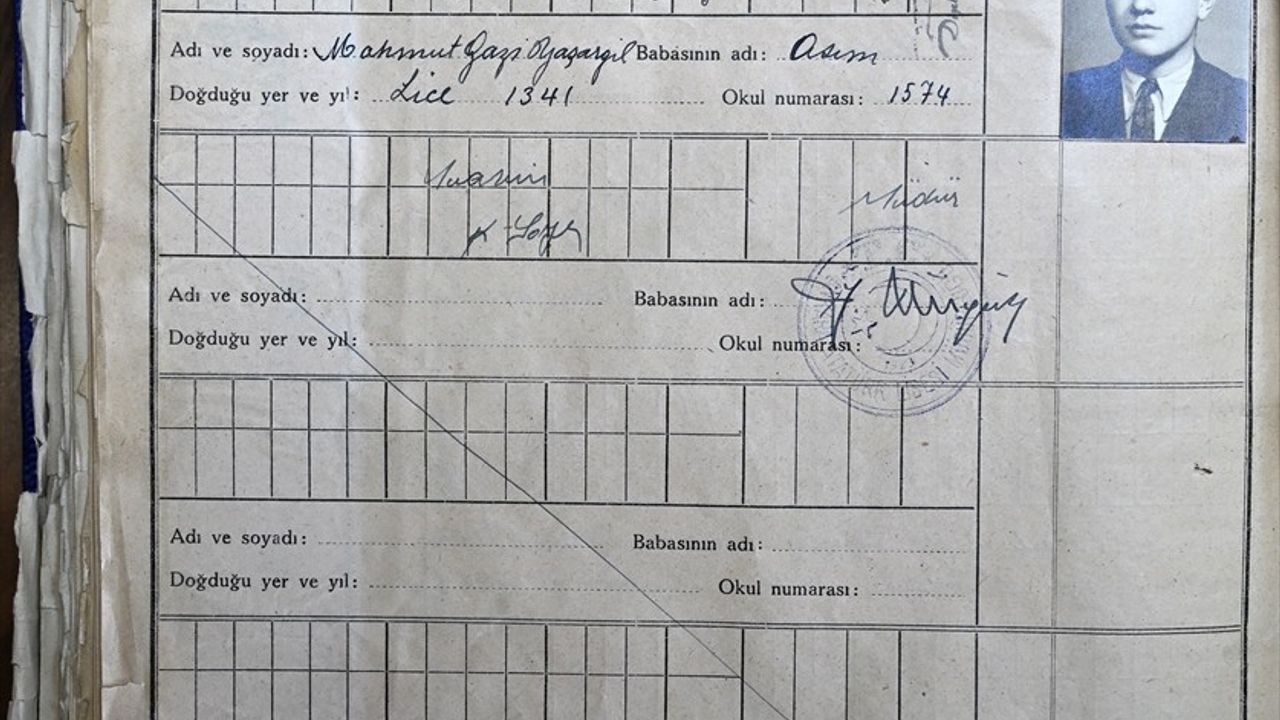 Adı ve soyadı: Mahmut Gazi Yaşargil Babasının adı: Asım
Doğduğu yer ve yıl: Lice 1341 Okul numarası: 1574
Muavini
Müdür
Adı ve soyadı: Babasının adı:
Doğduğu yer ve yıl: Okul numarası:
Adı ve soyadı: Babasının adı:
Doğduğu yer ve yıl: Okul numarası: